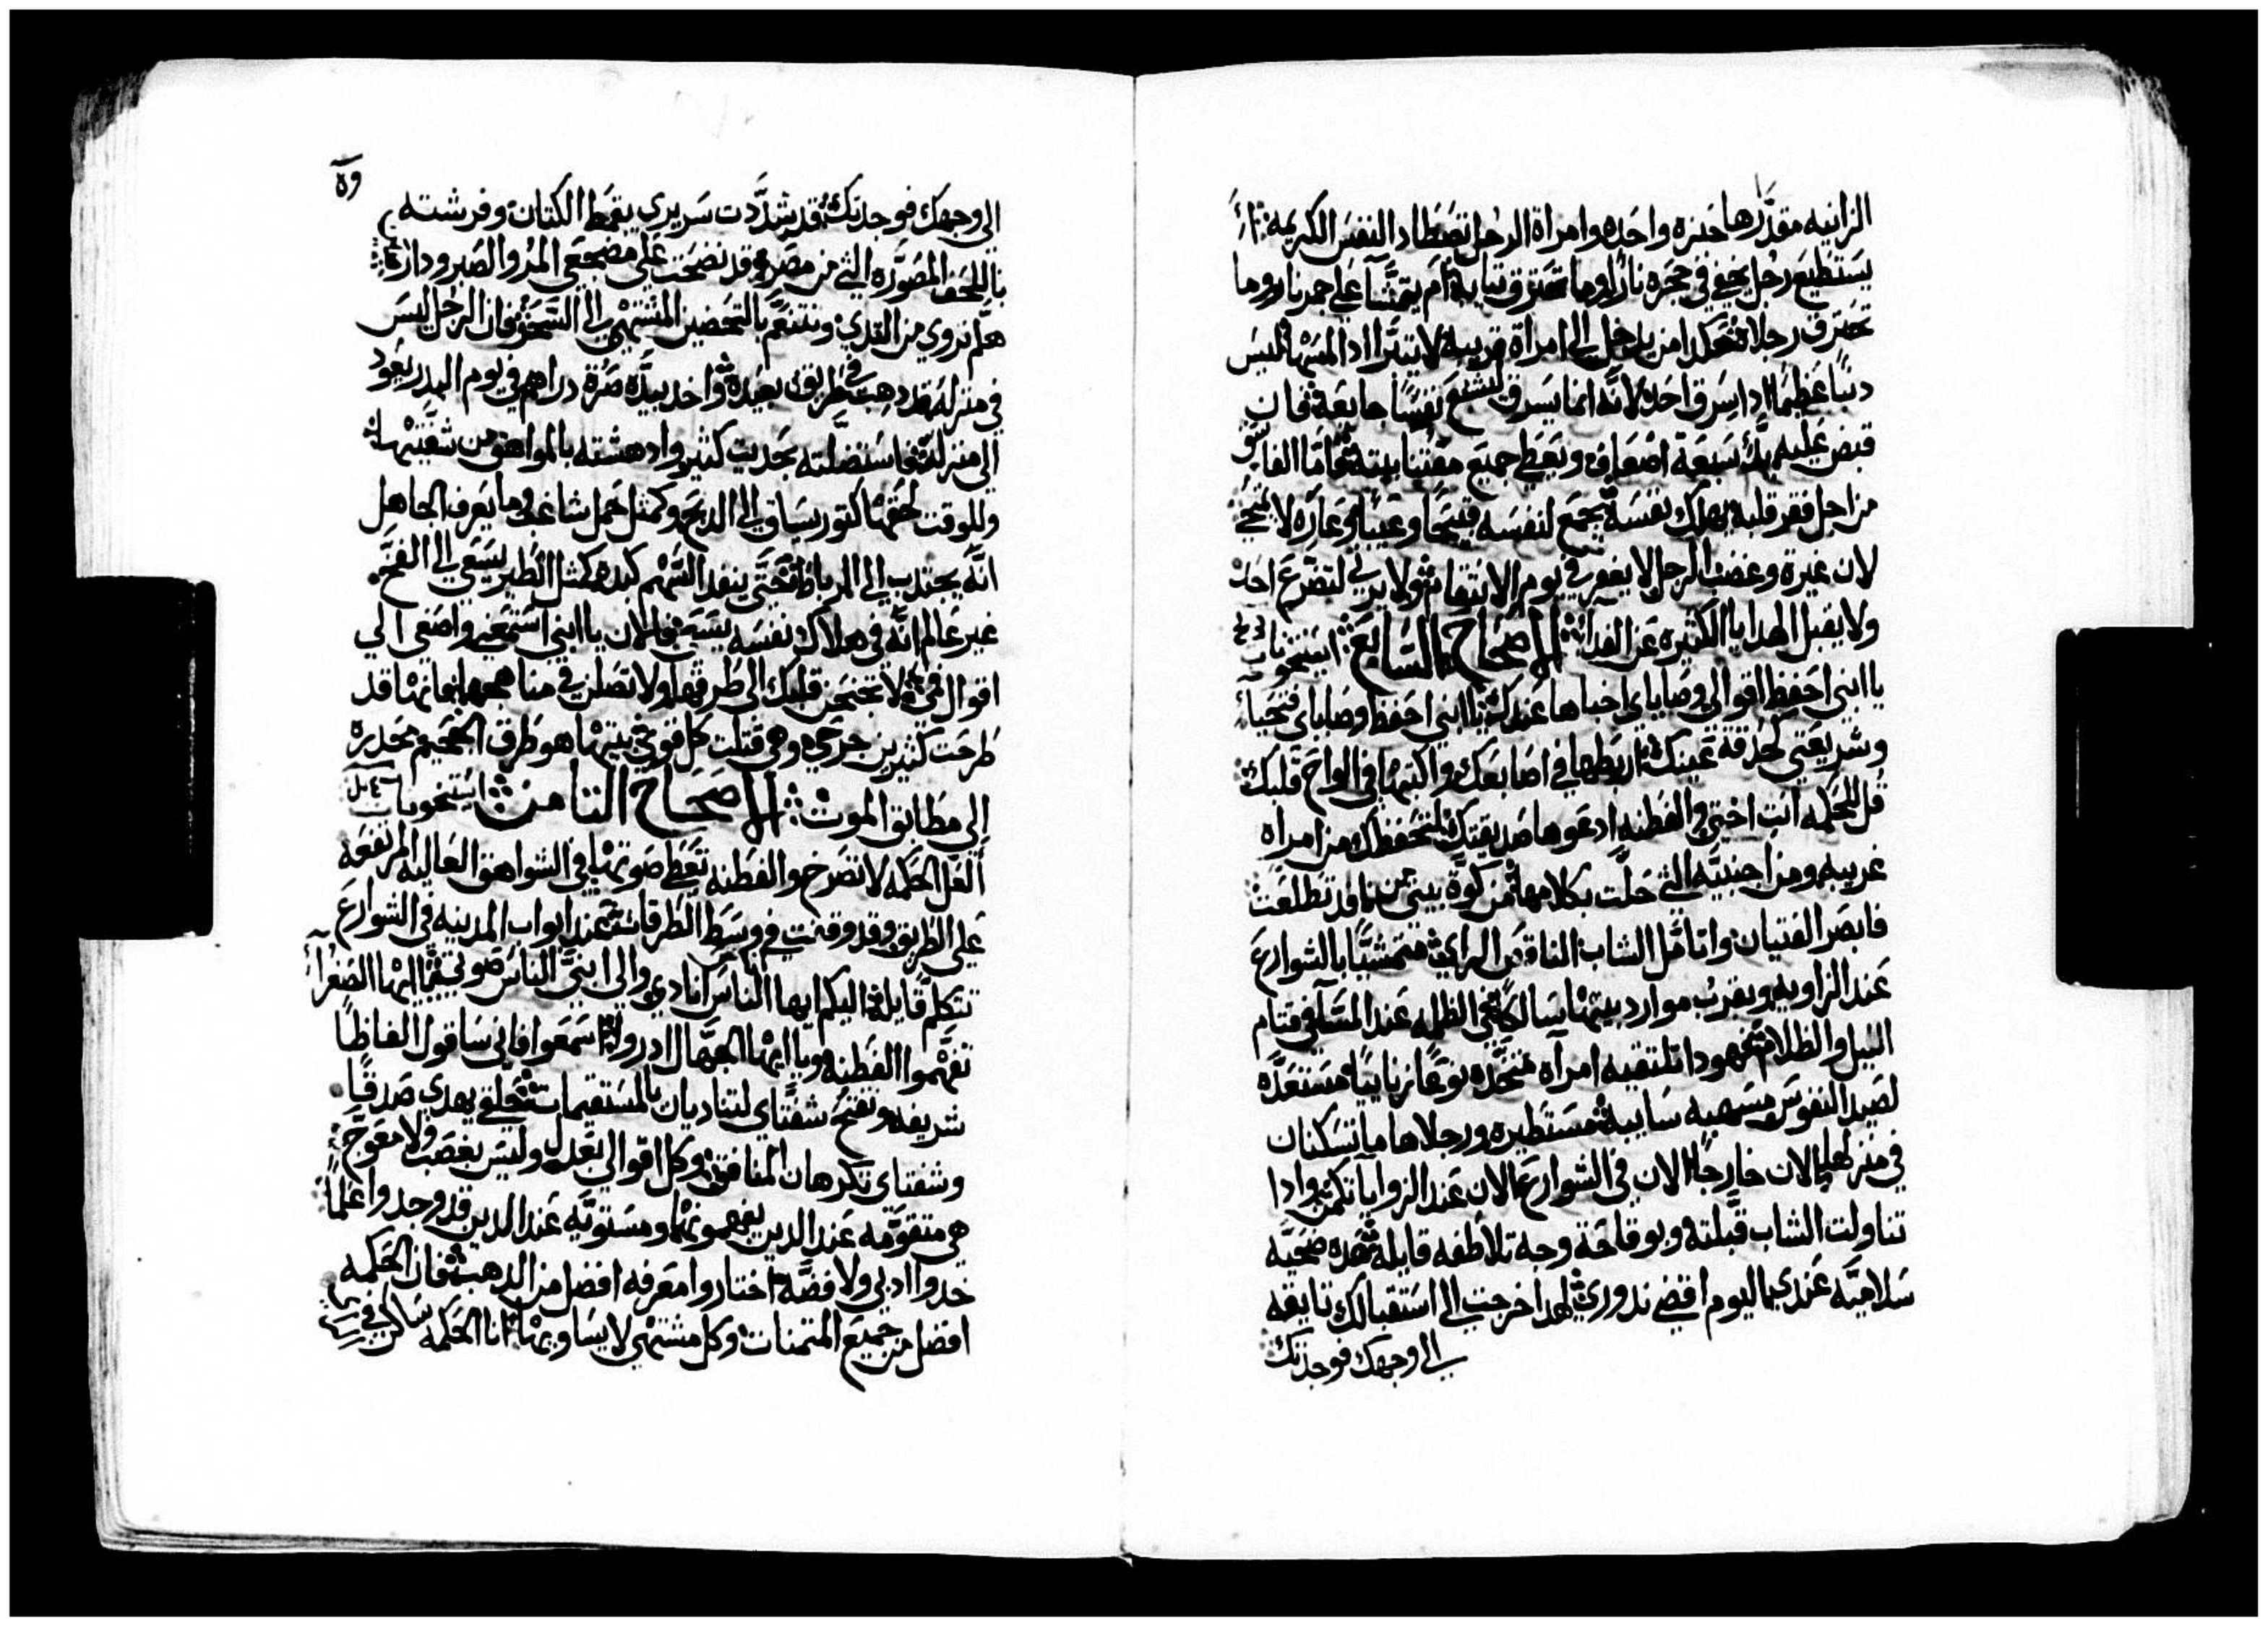 الزانيه مقدرها خبزه واحده وامراة الرجل تصطاد النفس الكريمه أ
يستطيع رجل يخفي في حجره نارا وما تحترق ثيابه ام يتمشا على جمر نار وما
تحترق رجلاه هكدا من يدخل الى امراة قريبه لا يتبرا ادا لمسها ليس
دنبا عظيما ادا سرق احد لانه انما يسرق ليشبع نفسا جايعة فان
قبض عليه يرد سبعة اضعاف ويعطي جميع مقتنا بيته فاما الفاسق
من اجل فقر قلبه يهلك نفسه يجمع لنفسه قبيحا وعيبا وعاره لا ينمحي
لان غيرة وغضب الرجل لا يغفر في يوم الانتقام ولا يرثي لتضرع احد
ولا يقبل الهدايا الكثيره عن الفدا الاصحاح السابع استيخونات
يا ابني احفظ اقوالي وصاياي اخباها عندك يا ابني احفظ وصاياي فتحيا
وشريعتي كحدقة عينك اربطها في اصابعك واكتبها في الواح قلبك
قل للحكمه انت اختي والفطنه ادعوها صديقتك لتحفظك من امراه
غريبه ومن اجنبيه التي حلت بكلامها من كوة بيتي من قد تطلعت
فابصر الفتيان واتامل الشاب الناقص الراي متمشيا بالشوارع
عند الزاويه وبقرب موارد بيتها سالكا في الظلمه عند المسا في قتام
الليل والظلام فهودا تلتقيه امراه متخده نوعا زنابيا مستعده
لصيد النفوس مسهبه سايبه مستطيره ورجلاها ما تسكنان
في منزلها الان خارجا الان في الشوارع الان عند الزوايا تكمن وادا
تناولت الشاب قبلته وبوقاحة وجه تلاطفه قايله هده ضحيه
سلاميه عندي اليوم اقضي ندوري لهدا خرجت الى استقبالك تايقه
الى وجهك فوجدتك
الى وجهك فوجدتك قد شددت سريري بقمط الكتان وفرشته
باللحف المصوره التي من مصر وقد نضحت على مضجعي المر والصبر ودار
هلم نروي من الثدي ونتنعم بالتحضين المشتهي الى السحر فان الرجل ليس
في منزله قد دهب في طريق بعيده واخد بيده صرة دراهم في يوم البدر يعود
الى منزله فاستضلته بحديث كثير وادهشته بالمواهق من شفتيها
وللوقت لحقها كتور يساق الى الدبح وكمثل حمل شاغي وما يعرف الجاهل
انه يجتدب الى الرباط حتى ينفد السهم كبده كمثل الطير يسعي الى الفخ
غير عالم انه في هلاك نفسه يسبه فالان يا ابني استمعني واصغي الى
اقوال فمي لا تجنحن قلبك الى طرقها ولا تضلن في مناهجها فانها قد
طرحت كثيرين جرحي وهي قتلت كل قوي بيتها هو طرق الجحيم محدره
الى مطابق الموت الاصحاح الثامن استيخونات
العل الحكمه لا تصرخ والفطنه تعطي صوتها في الشواهق العاليه المرتفعه
على الطريق وقد وقفت في وسط الطرقات عند ابواب المدينه في الشوارع
تتكلم قايله اليكم ايها الناس انادي والى ابني الناس صوتي ايها الصغرا
تفهموا الفطنه ويا ايها الجهال ادروا اسمعوا فاني ساقول الفاظا
شريفه وتفتح شفتاي لتناديان بالمستقيمات حلقي يهدي صدقا
وشفتاي تكرهان المنافق وكل اقوالي بعدل وليس بغصب ولا معوج
هي متقومه عند الدين يفهمونها ومستويه عند الدين قد وجدوا علما
خدوا ادبي ولا فضه اختاروا معرفه افضل من الدهب فان الحكمه
افضل من جميع المتمنات وكل مشتهي لا يساويها انا الحكمه ساكن في